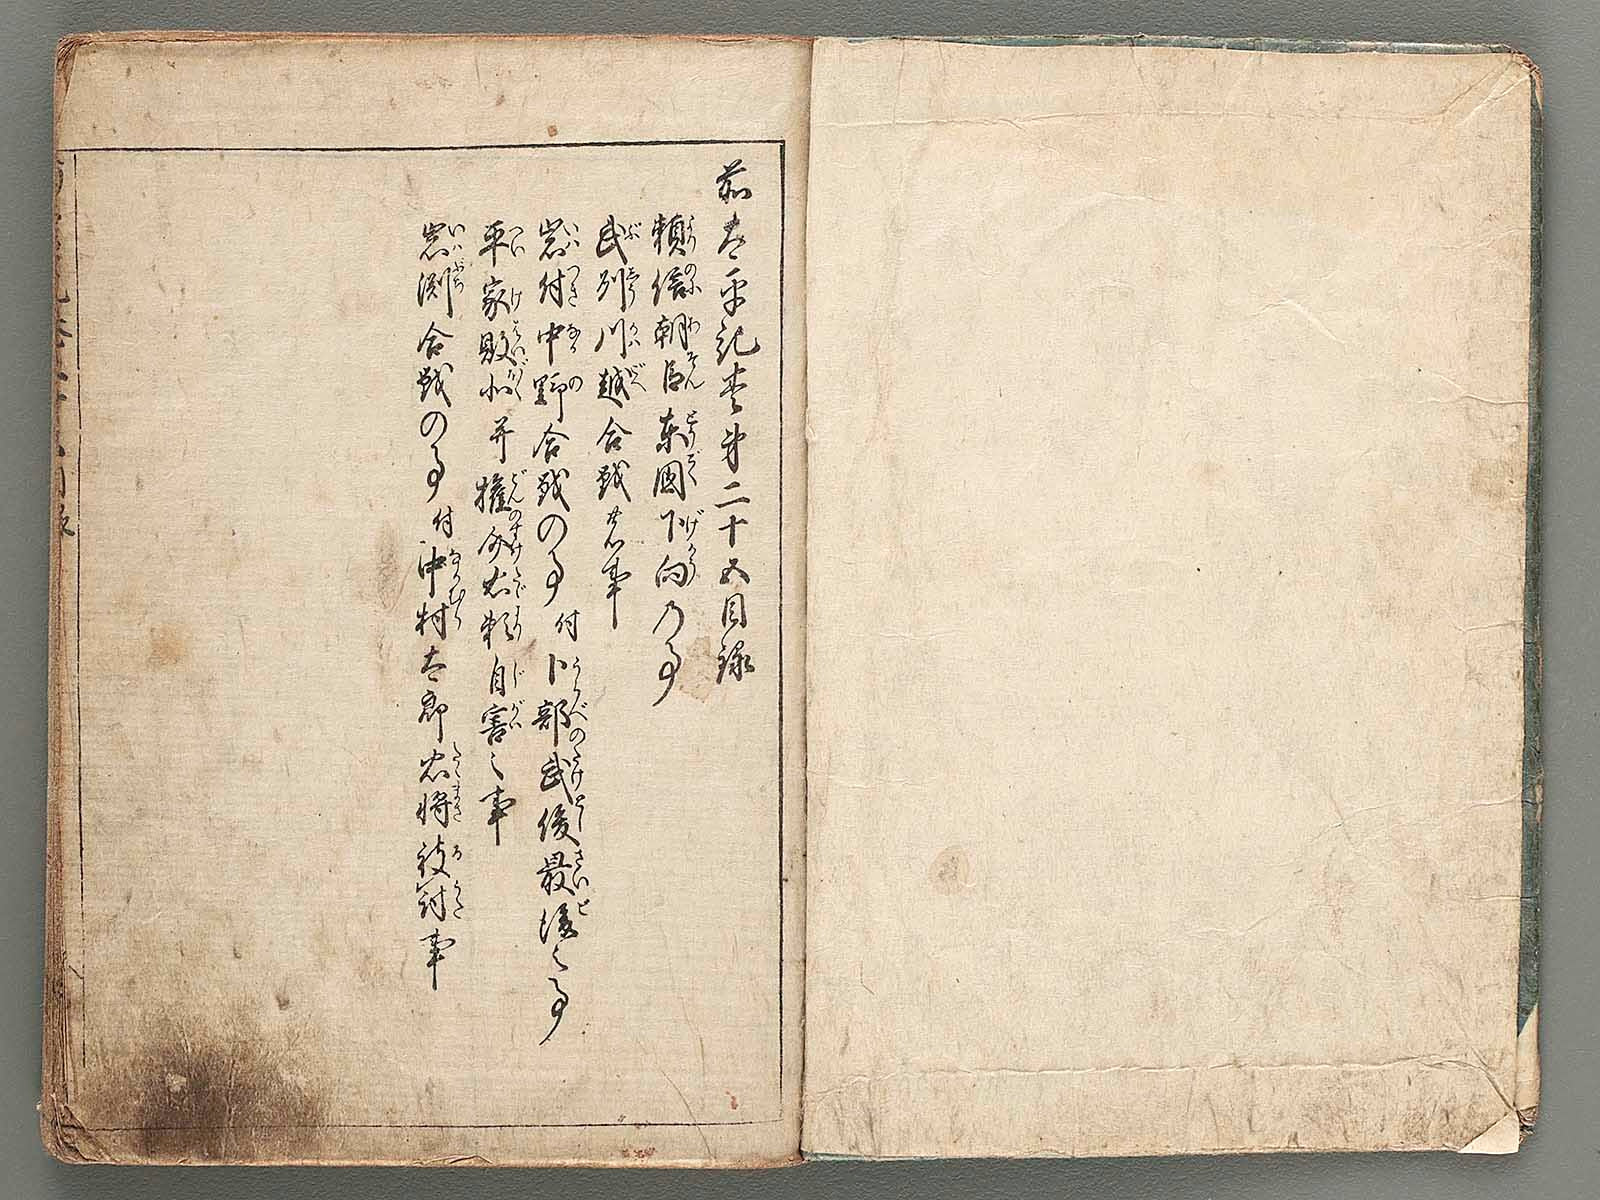 前太平記巻第二十五目録
頼信朝臣東國下向乃事
武州川越合戦の事
岩付中野合戦の事 付卜部武俊最後之事
平家敗北并権介忠頼自害之事
岩渕合戦の事 付中村太郎忠将被討事